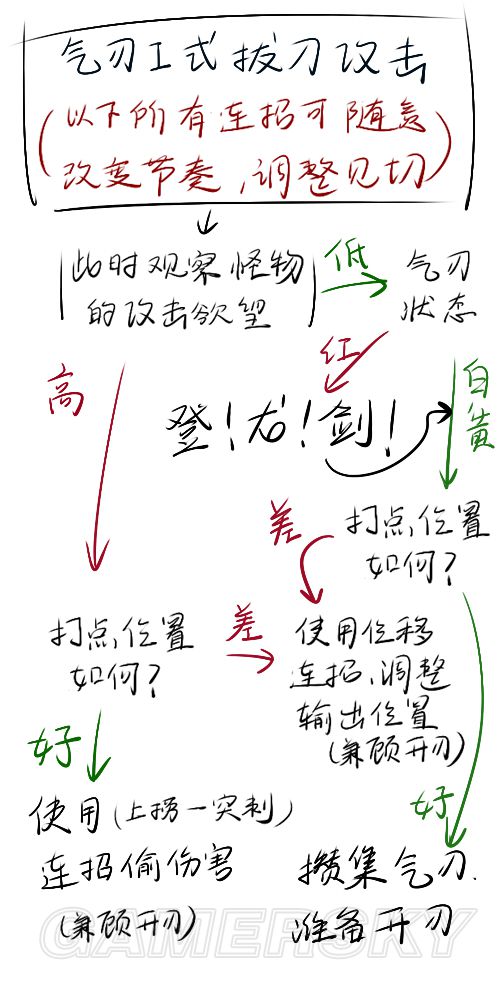 气刃I式拔刀攻击
(以下所有连招可随意
改变节奏,调整见切)
此时观察怪物
的攻击欲望
低
气刃
状态
红
高
白黄
登!龙!剑!
差
打点,位置
如何?
打点,位置
如何?
差
使用位移
连招,调整
输出位置
(兼顾开刃)
好
好
使用(上捞一突刺)
连招偷伤害
(兼顾开刃)
攒集气刃.
准备开刃
GAMERSKY